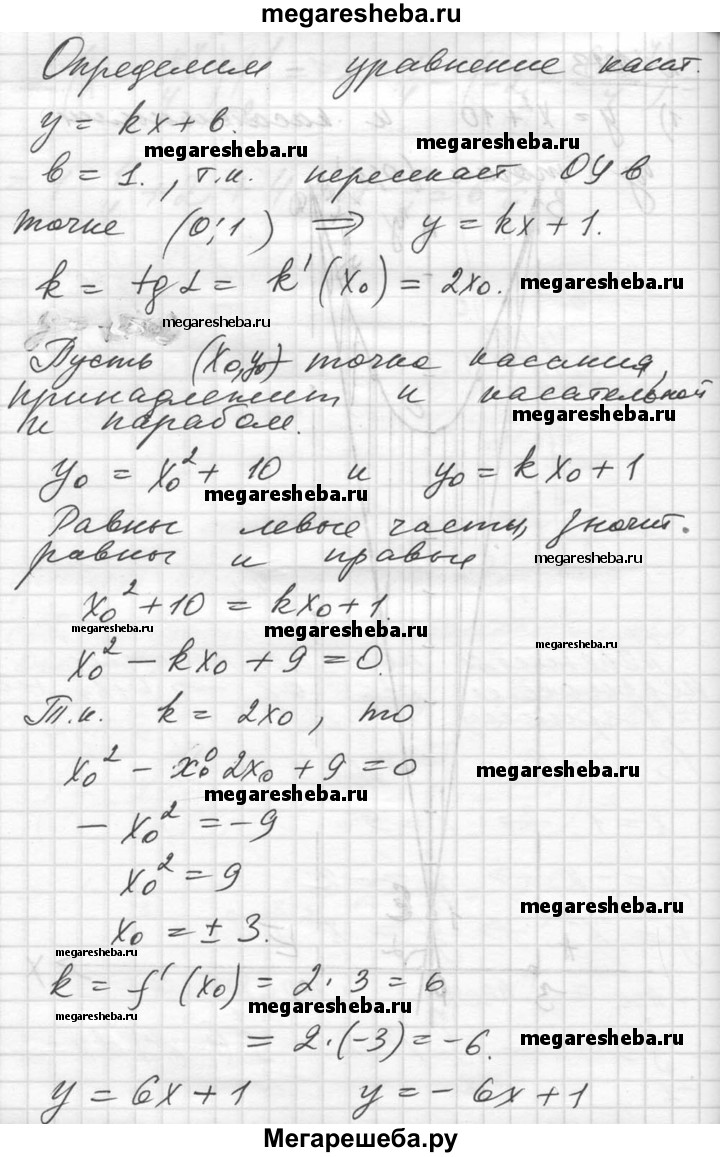 megaresheba.ru
Определим уравнение касат.
y = kx + b.
megaresheba.ru
megaresheba.ru
b = 1. , т.к. пересекает OY в
точке (0; 1) ⟹ y = kx + 1.
k = tg α = k'(x₀) = 2x₀.
megaresheba.ru
megaresheba.ru
Пусть (x₀,y₀) точка касания,
принадлежит и касательной
megaresheba.ru
и парабол.
y₀ = x₀² + 10 и y₀ = kx₀ + 1
megaresheba.ru
Равны левые части, значит.
равны и правые
megaresheba.ru
x₀² + 10 = kx₀ + 1.
megaresheba.ru
megaresheba.ru
megaresheba.ru
x₀² – kx₀ + 9 = 0.
Т.к. k = 2x₀ , то
x₀² – x₀ · 2x₀ + 9 = 0
megaresheba.ru
megaresheba.ru
– x₀² = –9
x₀² = 9
megaresheba.ru
x₀ = ± 3.
megaresheba.ru
k = f'(x₀) = 2 · 3 = 6
megaresheba.ru
megaresheba.ru
= 2 · (–3) = –6.
y = 6x + 1 y = – 6x + 1
Мегарешеба.ру